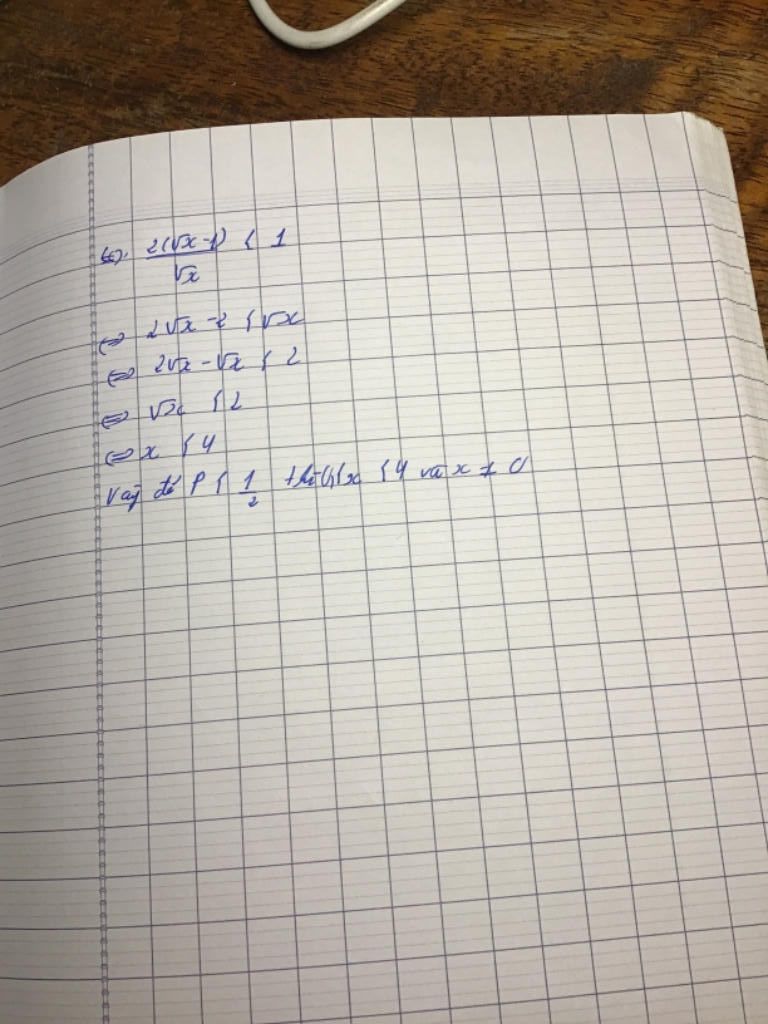 ⇔ 2(√x - 1)/√x < 1
⇔ 2√x - 2 < √x
⇔ 2√x - √x < 2
⇔ √x < 2
⇔ x < 4
Vậy để P < 1/2 thì < x < 4 và x ≠ 0